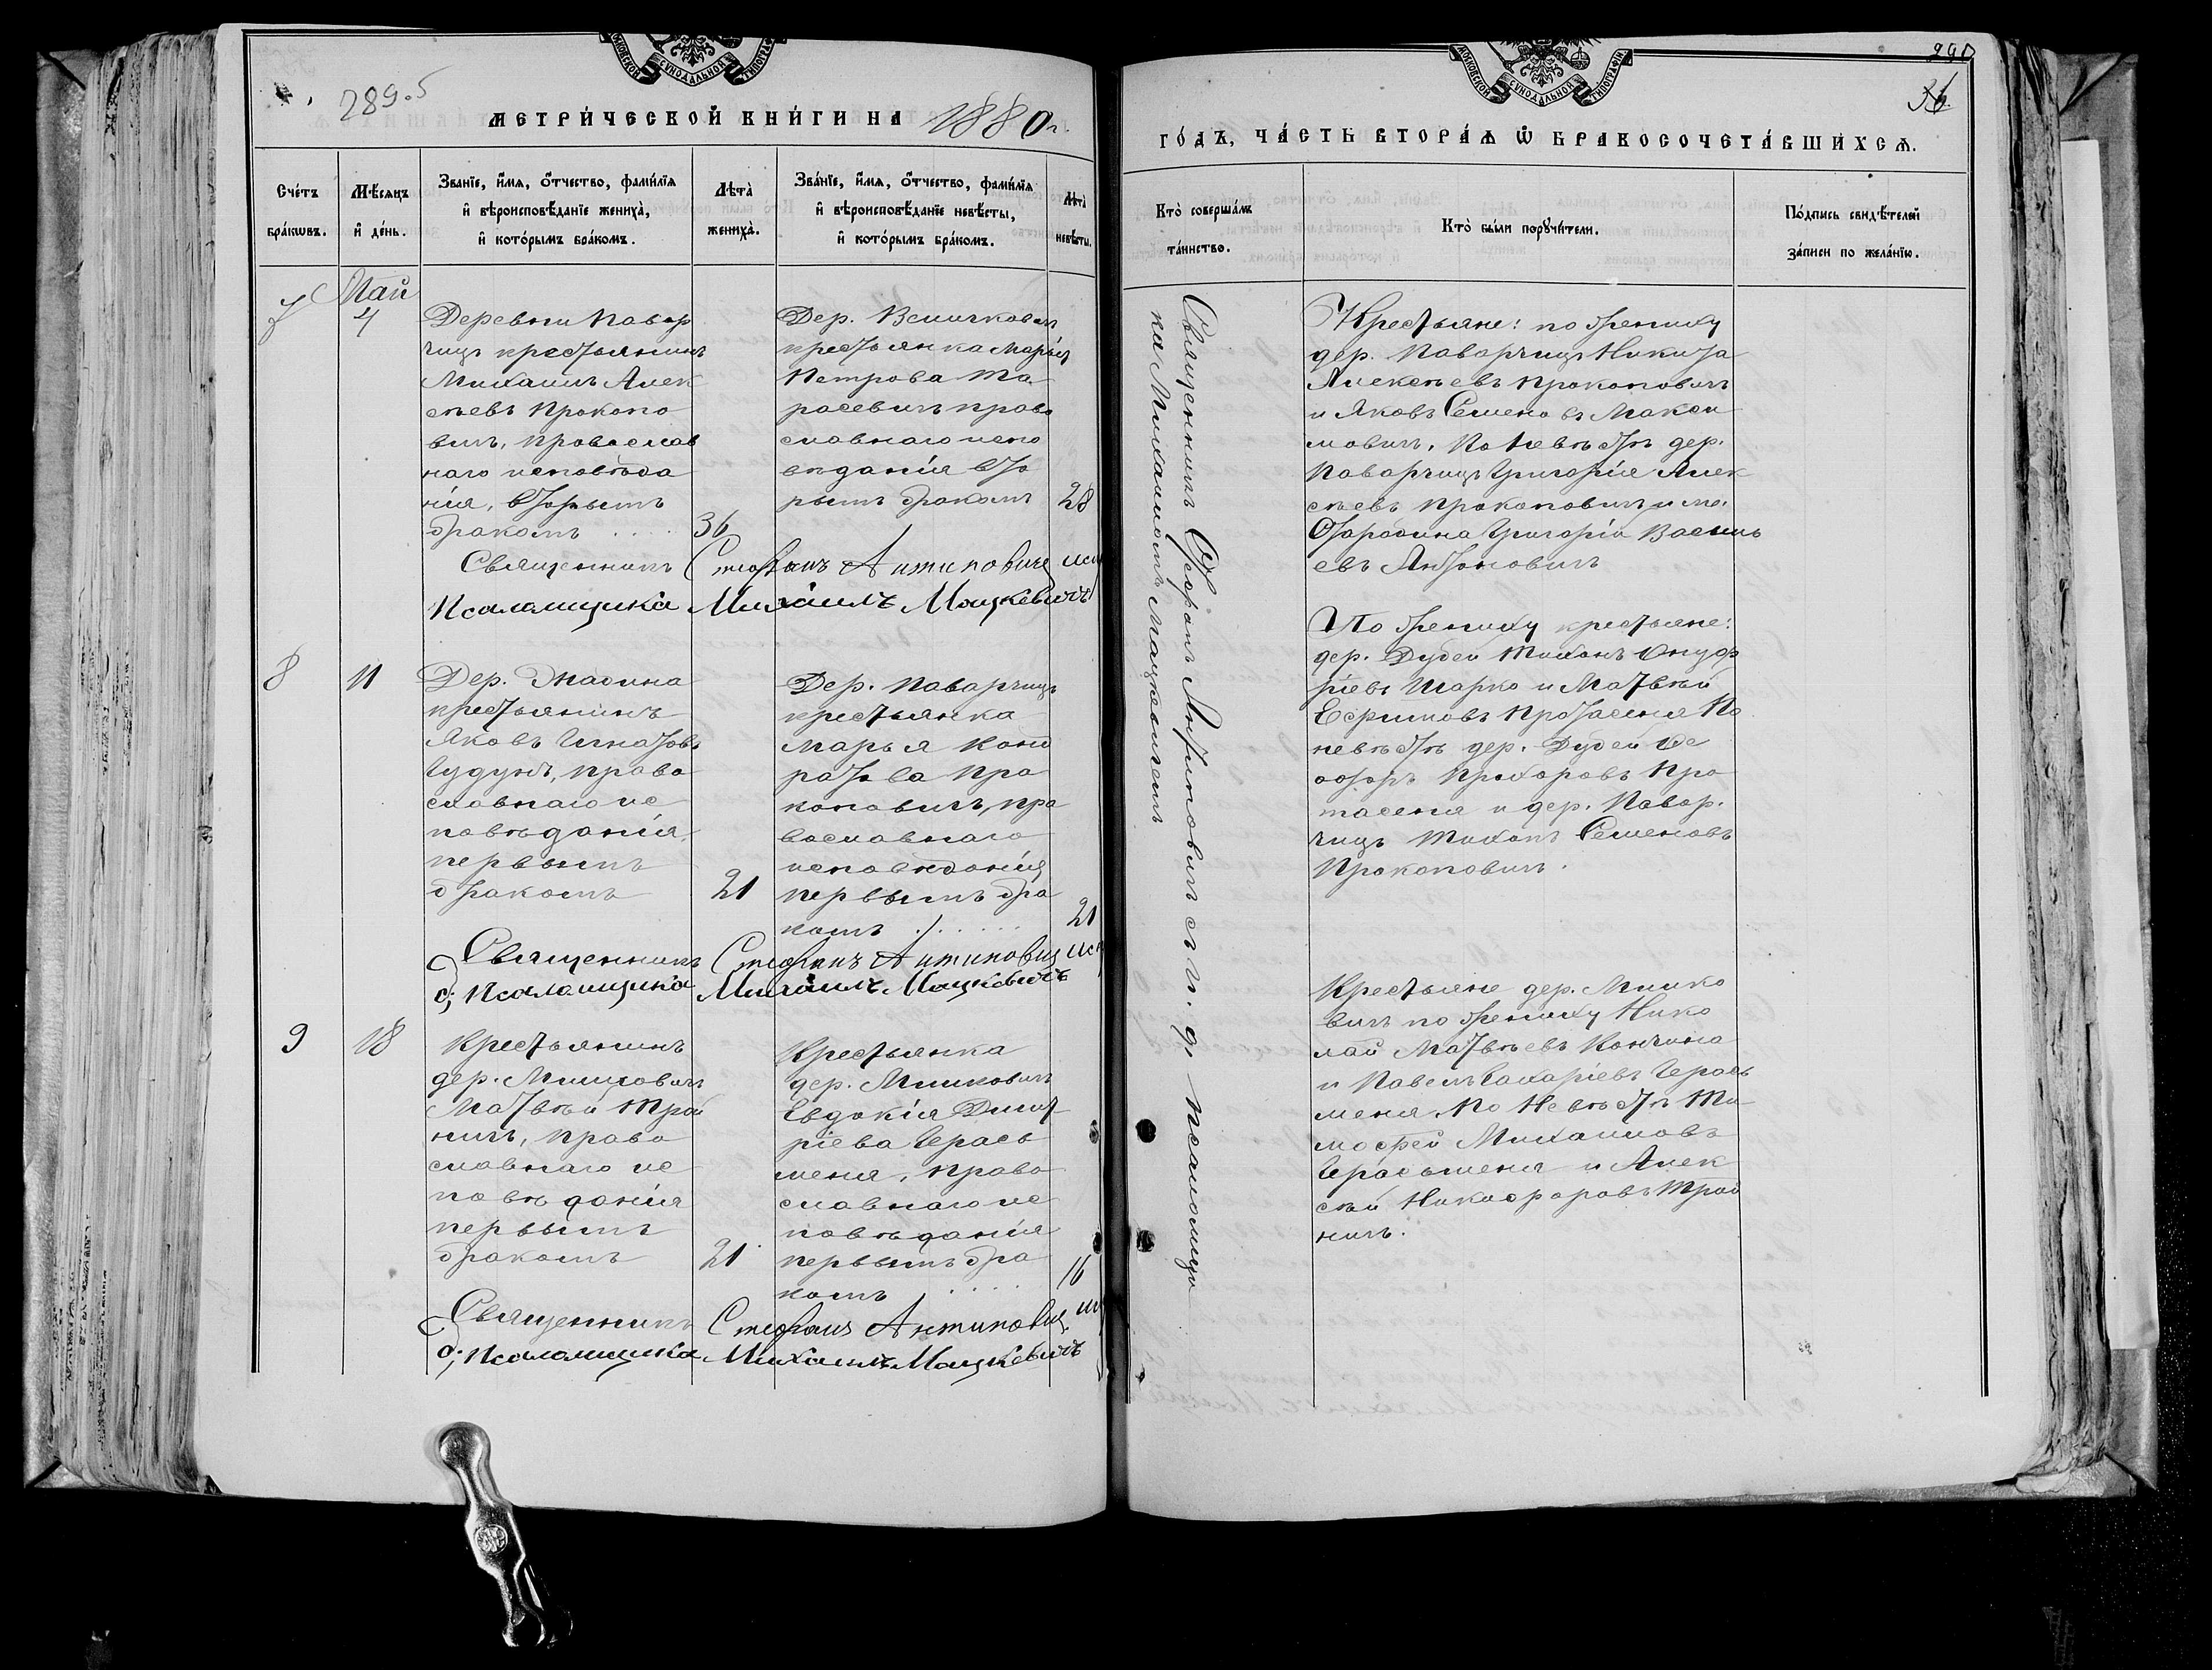 289.5
МЕТРИ́ЧЕСКОЙ КНИ́ГИ НА 1880 г.
Сче́тъ бра́ковъ.
Мѣ́сяцъ и де́нь.
Зва́нїе, и҆́мѧ, ѻ҆́тчество, фами́лїѧ и҆ вѣроисповѣ́данїе жениха̀, и҆ кото́рымъ бра́комъ.
Лѣта̀ жениха̀.
Зва́нїе, и҆́мѧ, ѻ҆́тчество, фами́лїѧ и҆ вѣроисповѣ́данїе невѣ́сты, и҆ кото́рымъ бра́комъ.
Лѣта̀ невѣ́сты.
7
Май
4
Деревни Повар
чицъ крестьянинъ
Михаилъ Алек
сѣевъ Прокопо
вичъ, православ
наго исповѣда
нія, вторымъ
бракомъ
36
Дер. Величковичъ
крестьянка Марья
Петрова Та
расевичъ право
славнаго испо
вѣданія вто
рымъ бракомъ
28
Священникъ Стефанъ Антиповичъ
Псаломщикъ Михаилъ Мацкевичъ
8
11
Дер.
крестьянинъ
Яковъ Игнатовъ
Чудукъ, право
славнаго ис
повѣданія
первымъ
бракомъ
21
Дер. Поварчицъ
крестьянка
Марья Конд
ратова Про
коповичъ, пра
вославнаго
исповѣданія
первымъ бра
комъ
21
Священникъ Стефанъ Антиповичъ
Псаломщика Михаилъ Мацкевичъ
9
18
Крестьянинъ
дер. Милковичъ
Матвѣй Трой
ничъ, право
славнаго ис
повѣданія
первымъ
бракомъ
21
Крестьянка
дер. Милковичъ
Евдокія Димит
ріева Герась
меня, право
славнаго ис
повѣданія
первымъ бра
комъ
16
Священникъ Стефанъ Антиповичъ
Псаломщика Михаилъ Мацкевичъ
290
36
ГО́ДЪ, ЧА́СТЬ ВТОРА́Ѧ Ѡ҆ БРАКОСОЧЕТА́ВШИХСѦ.
Кто̀ соверша́лъ та́инство.
Кто̀ бы́ли порꙋчи́тели.
По́дпись свидѣ́телей за́писи по жела́нїю.
Священникъ Стефанъ Антиповичъ съ и. д. псаломщи
ка Михаиломъ Мацкевичемъ
Крестьяне: по жениху
дер. Поварчицъ Никита
Алексѣевъ Прокоповичъ
и Яковъ Семеновъ Макси
мовичъ. По невѣстѣ дер.
Поварчицъ Григорій Алек
сѣевъ Прокоповичъ и
Григорій Василь
евъ Антоновичъ
По жениху крестьяне:
дер. Дубеи Тихонъ Онуф
ріевъ Шарко и Матвѣй
Ефимовъ Протасеня По
невѣстѣ дер. Дубеи Ѳе
одоръ Прохоровъ Про
тасеня и дер. Повар.
чицъ Тихонъ Семеновъ
Прокоповичъ.
Крестьяне дер. Милко
вичъ по жениху Нико
лай Матвѣевъ Кончина
и Павелъ Захаріевъ Герась
меня. По невѣстѣ Ти
мофей Михаиловъ
Герасьменя и Алек
сѣй Никифоровъ Трой
ничъ.